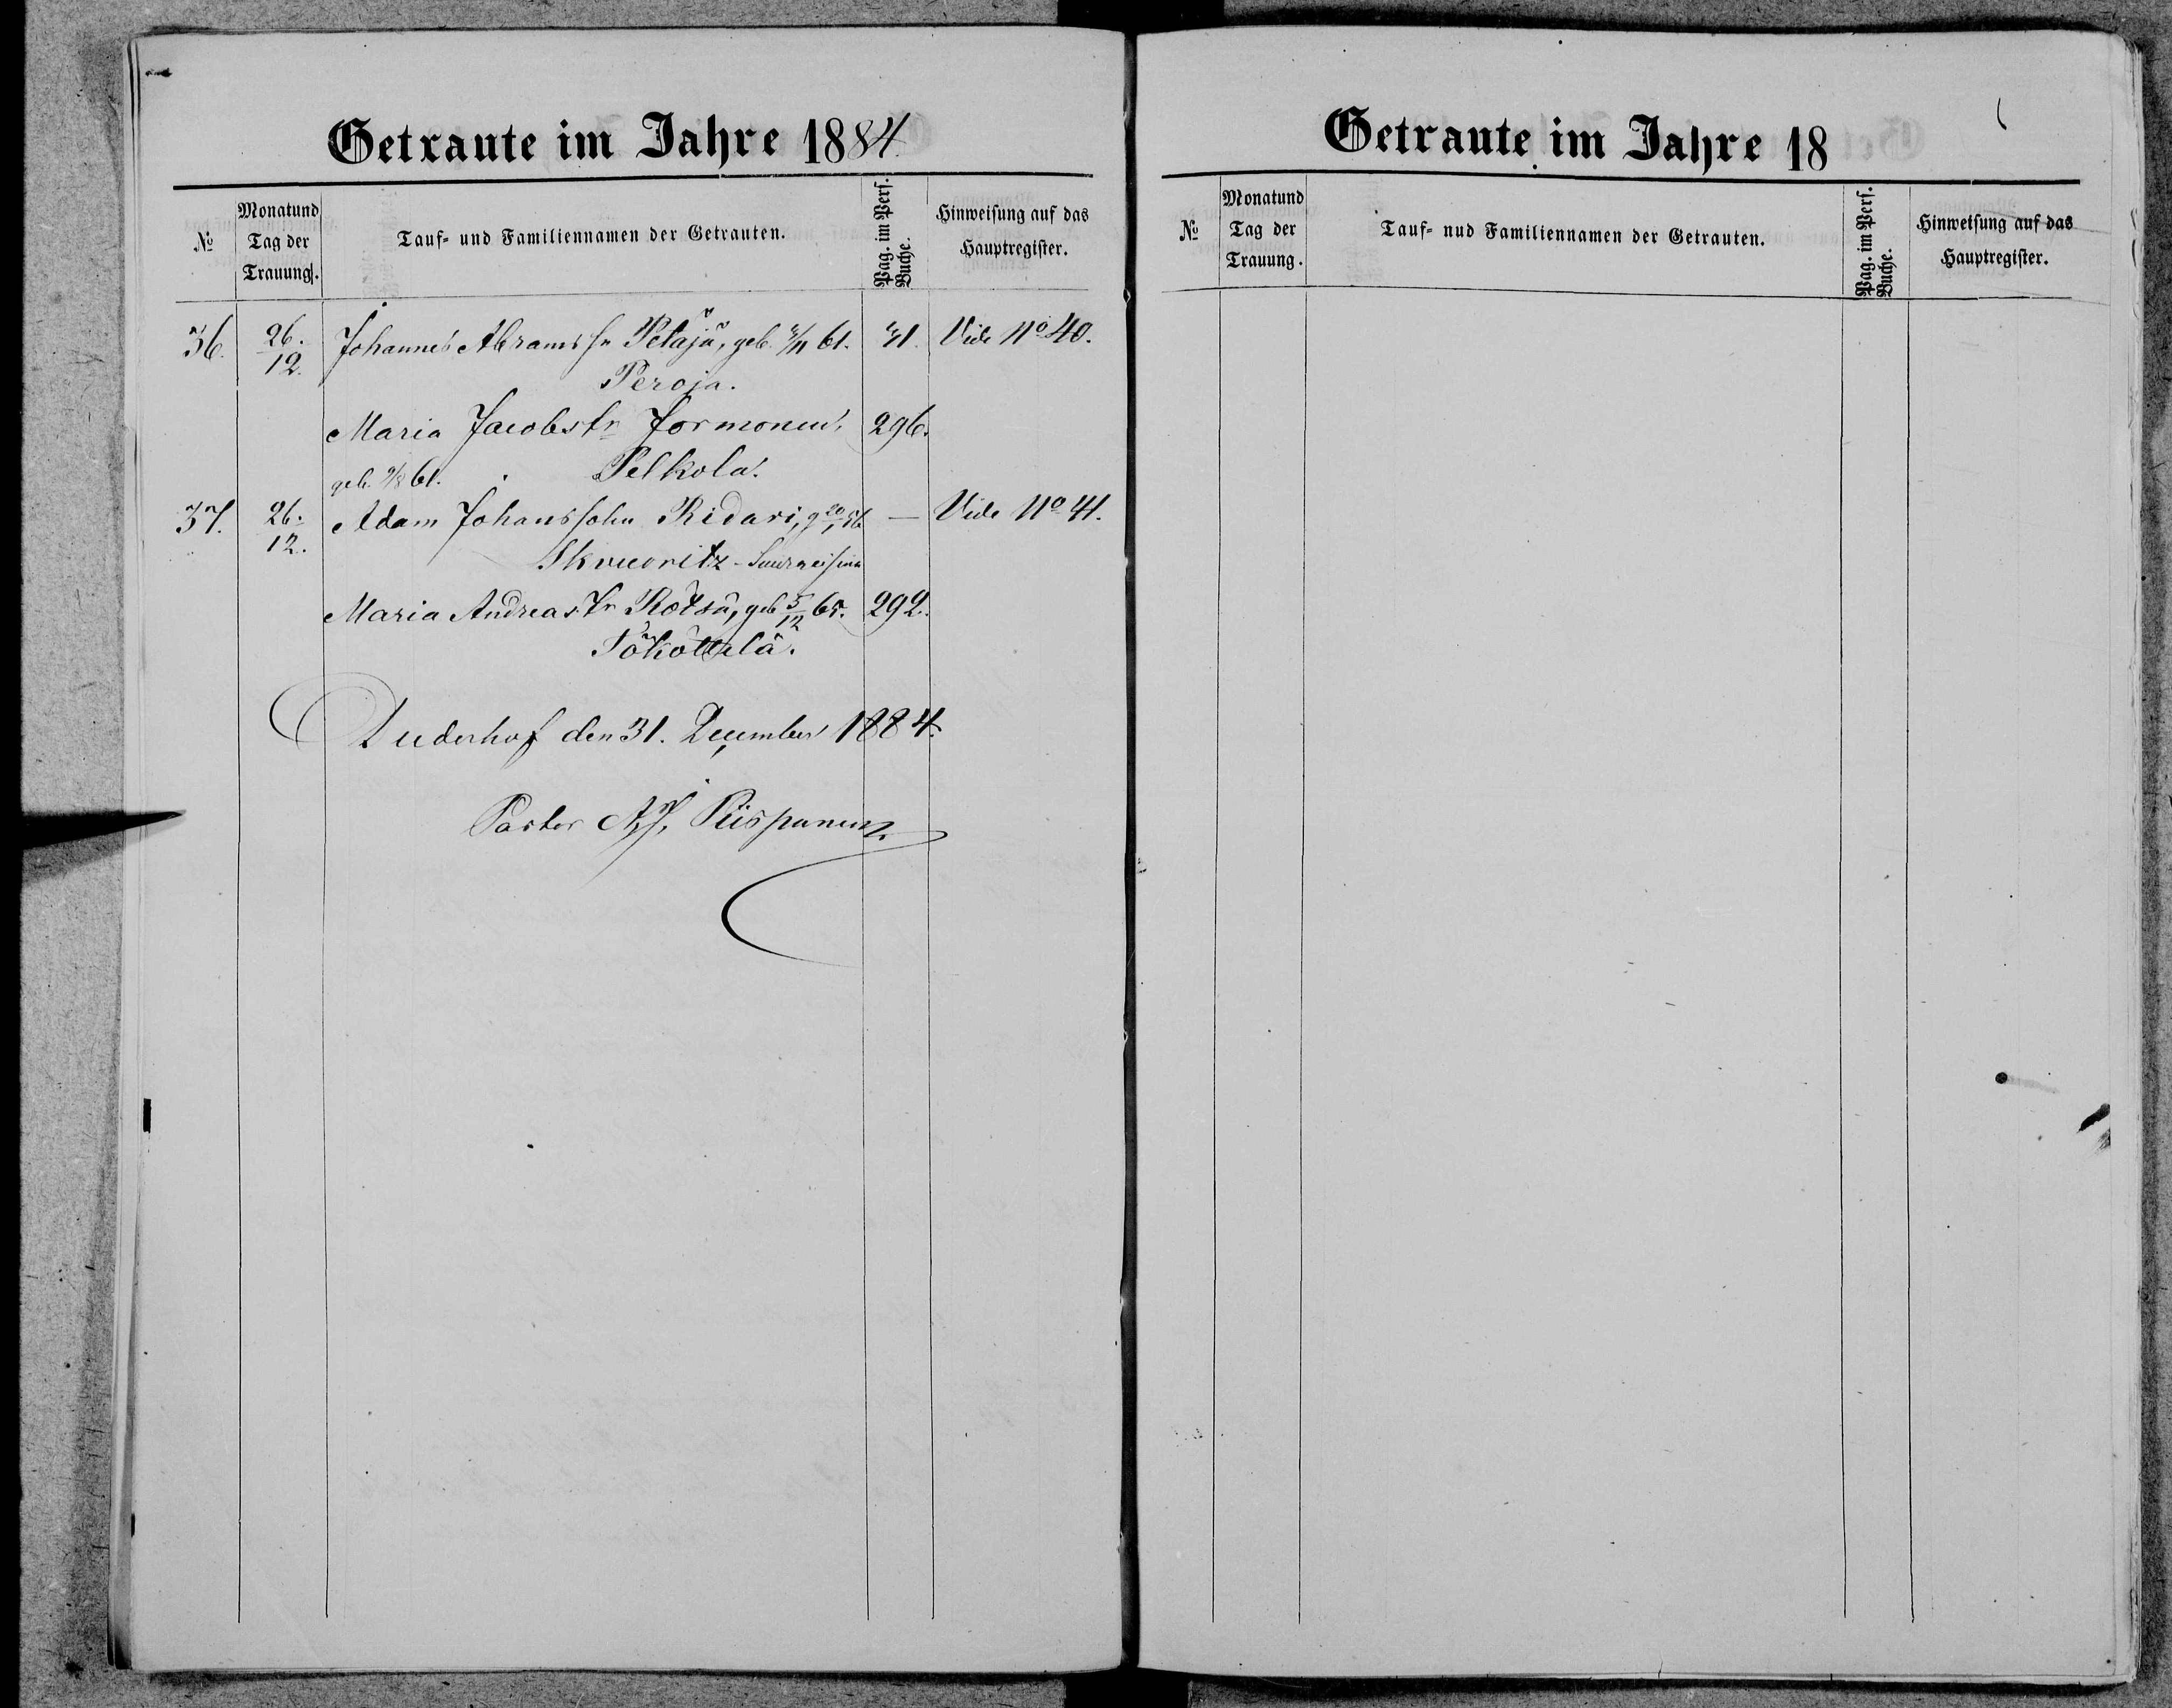 Getraute im Jahre 1884.
№
Monatund Tag der Trauung.
Tauf- und Familiennamen der Getrauten.
Pag. im Pers. Buche.
Hinweisung auf das Hauptregister.
36. 26./12. Johannes Abramssn Petäjä, geb. 61. 31. Vide No 40.
Peroja.
Maria Jacobstr Jormonen, 296.
geb. 61. Pelkola.
37. 26./12. Adam Johanssohn Ridari, g. 20/1 56 — Vide No 41.
Skworitz -
Maria Andreastr Rötsä, geb. 5/12 65. 292.
Pököttelä.
Duderhof den 31. December 1884.
Pastor Piispanen
Getraute im Jahre 18
№
Monatund Tag der Trauung.
Tauf- nud Familiennamen der Getrauten.
Pag. im Pers. Buche.
Hinweisung auf das Hauptregister.